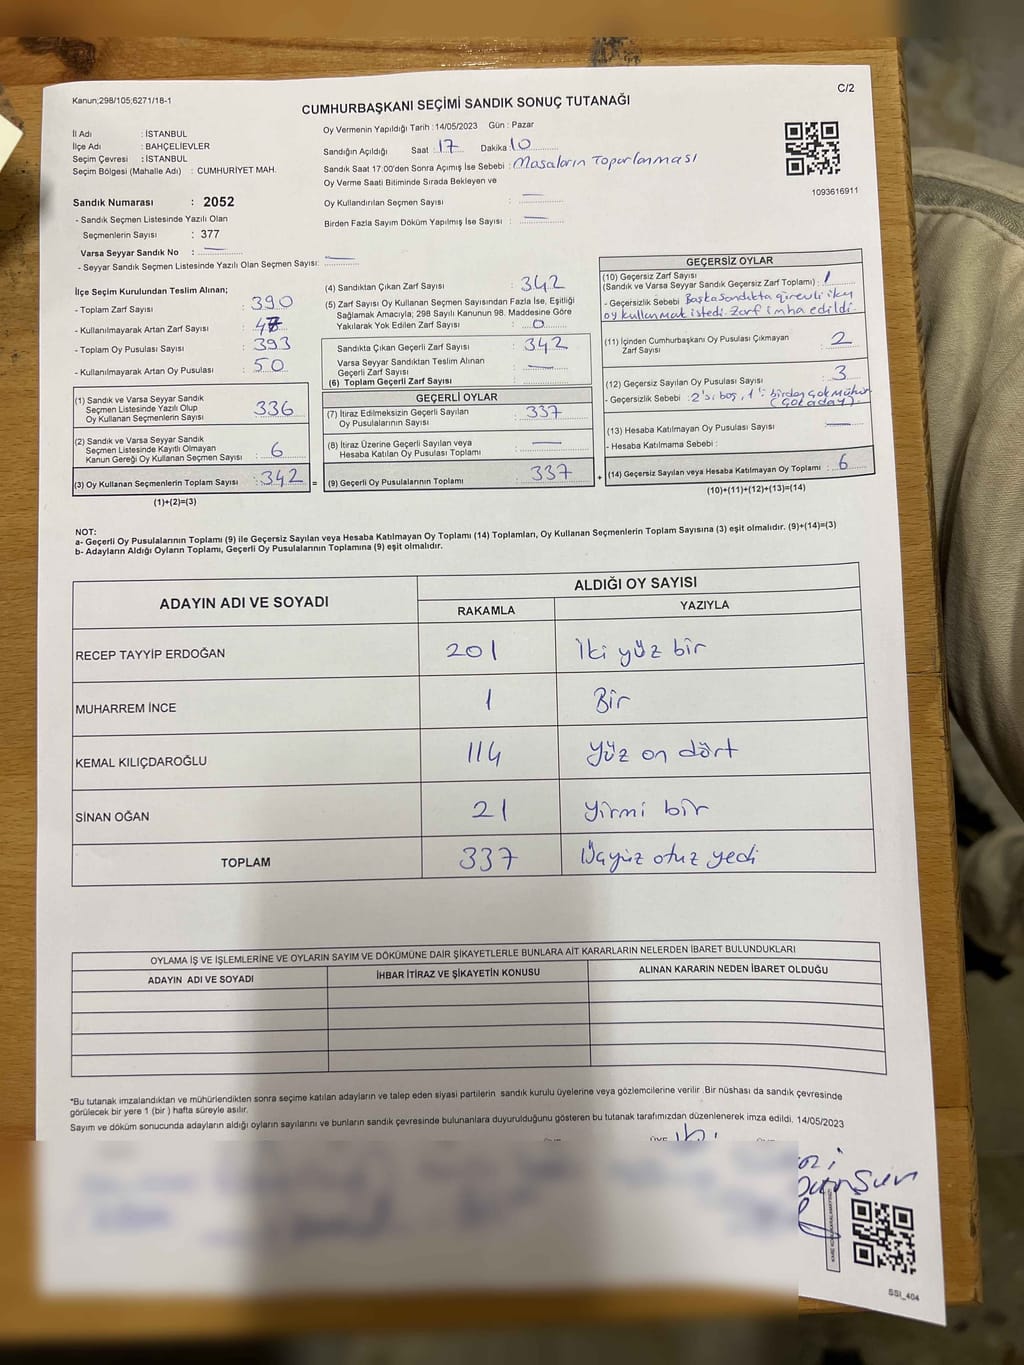 Kanun;298/105;6271/18-1
C/2
CUMHURBAŞKANI SEÇİMİ SANDIK SONUÇ TUTANAĞI
İl Adı : İSTANBUL
İlçe Adı : BAHÇELİEVLER
Seçim Çevresi : İSTANBUL
Seçim Bölgesi (Mahalle Adı) : CUMHURİYET MAH.
Oy Vermenin Yapıldığı Tarih : 14/05/2023 Gün : Pazar
Sandığın Açıldığı Saat : 17 Dakika 10
Sandık Saat 17:00'den Sonra Açımış İse Sebebi : Masaların Toparlanması
Oy Verme Saati Bitiminde Sırada Bekleyen ve
Oy Kullandırılan Seçmen Sayısı : —
Birden Fazla Sayım Döküm Yapılmış İse Sayısı : —
1093616911
Sandık Numarası : 2052
- Sandık Seçmen Listesinde Yazılı Olan
Seçmenlerin Sayısı : 377
Varsa Seyyar Sandık No : —
- Seyyar Sandık Seçmen Listesinde Yazılı Olan Seçmen Sayısı: —
İlçe Seçim Kurulundan Teslim Alınan;
- Toplam Zarf Sayısı : 390
- Kullanılmayarak Artan Zarf Sayısı :
- Toplam Oy Pusulası Sayısı : 393
- Kullanılmayarak Artan Oy Pusulası : 50
(1) Sandık ve Varsa Seyyar Sandık
Seçmen Listesinde Yazılı Olup
Oy Kullanan Seçmenlerin Sayısı : 336
(2) Sandık ve Varsa Seyyar Sandık
Seçmen Listesinde Kayıtlı Olmayan
Kanun Gereği Oy Kullanan Seçmen Sayısı : 6
(3) Oy Kullanan Seçmenlerin Toplam Sayısı : 342 =
(1)+(2)=(3)
(4) Sandıktan Çıkan Zarf Sayısı : 342
(5) Zarf Sayısı Oy Kullanan Seçmen Sayısından Fazla İse, Eşitliği
Sağlamak Amacıyla; 298 Sayılı Kanunun 98. Maddesine Göre
Yakılarak Yok Edilen Zarf Sayısı : 0
Sandıkta Çıkan Geçerli Zarf Sayısı : 342
Varsa Seyyar Sandıktan Teslim Alınan
Geçerli Zarf Sayısı : —
(6) Toplam Geçerli Zarf Sayısı :
GEÇERLİ OYLAR
(7) İtiraz Edilmeksizin Geçerli Sayılan
Oy Pusulalarının Sayısı : 337
(8) İtiraz Üzerine Geçerli Sayılan veya
Hesaba Katılan Oy Pusulası Toplamı : —
(9) Geçerli Oy Pusulalarının Toplamı : 337 +
GEÇERSİZ OYLAR
(10) Geçersiz Zarf Sayısı
(Sandık ve Varsa Seyyar Sandık Geçersiz Zarf Toplamı) : 1
- Geçersizlik Sebebi : Başka sandıkta görevli iken
oy kullanmak istedi. Zarf imha edildi.
(11) İçinden Cumhurbaşkanı Oy Pusulası Çıkmayan
Zarf Sayısı : 2
(12) Geçersiz Sayılan Oy Pusulası Sayısı : 3
- Geçersizlik Sebebi : 2'si boş, 1'i birden çok mühür
(Çok aday).
(13) Hesaba Katılmayan Oy Pusulası Sayısı : —
- Hesaba Katılmama Sebebi :
(14) Geçersiz Sayılan veya Hesaba Katılmayan Oy Toplamı : 6
(10)+(11)+(12)+(13)=(14)
NOT:
a- Geçerli Oy Pusulalarının Toplamı (9) ile Geçersiz Sayılan veya Hesaba Katılmayan Oy Toplamı (14) Toplamları, Oy Kullanan Seçmenlerin Toplam Sayısına (3) eşit olmalıdır. (9)+(14)=(3)
b- Adayların Aldığı Oyların Toplamı, Geçerli Oy Pusulalarının Toplamına (9) eşit olmalıdır.
ADAYIN ADI VE SOYADI
ALDIĞI OY SAYISI
RAKAMLA YAZIYLA
RECEP TAYYİP ERDOĞAN 201 İki yüz bir
MUHARREM İNCE 1 Bir
KEMAL KILIÇDAROĞLU 114 Yüz on dört
SİNAN OĞAN 21 Yirmi bir
TOPLAM 337 Üçyüz otuz yedi
OYLAMA İŞ VE İŞLEMLERİNE VE OYLARIN SAYIM VE DÖKÜMÜNE DAİR ŞİKAYETLERLE BUNLARA AİT KARARLARIN NELERDEN İBARET BULUNDUKLARI
ADAYIN ADI VE SOYADI İHBAR İTİRAZ VE ŞİKAYETİN KONUSU ALINAN KARARIN NEDEN İBARET OLDUĞU
*Bu tutanak imzalandıktan ve mühürlendikten sonra seçime katılan adayların ve talep eden siyasi partilerin sandık kurulu üyelerine veya gözlemcilerine verilir .Bir nüshası da sandık çevresinde
görülecek bir yere 1 (bir ) hafta süreyle asılır.
Sayım ve döküm sonucunda adayların aldığı oyların sayılarını ve bunların sandık çevresinde bulunanlara duyurulduğunu gösteren bu tutanak tarafımızdan düzenlenerek imza edildi. 14/05/2023
SSI_404